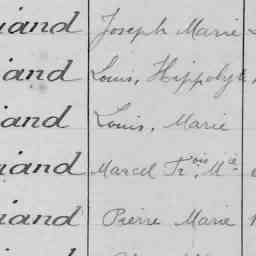 iand Joseph Marie
iand Louis, Hippolyte
iand Louis, Marie
iand Marcel Frois Mie
iand Pierre Marie